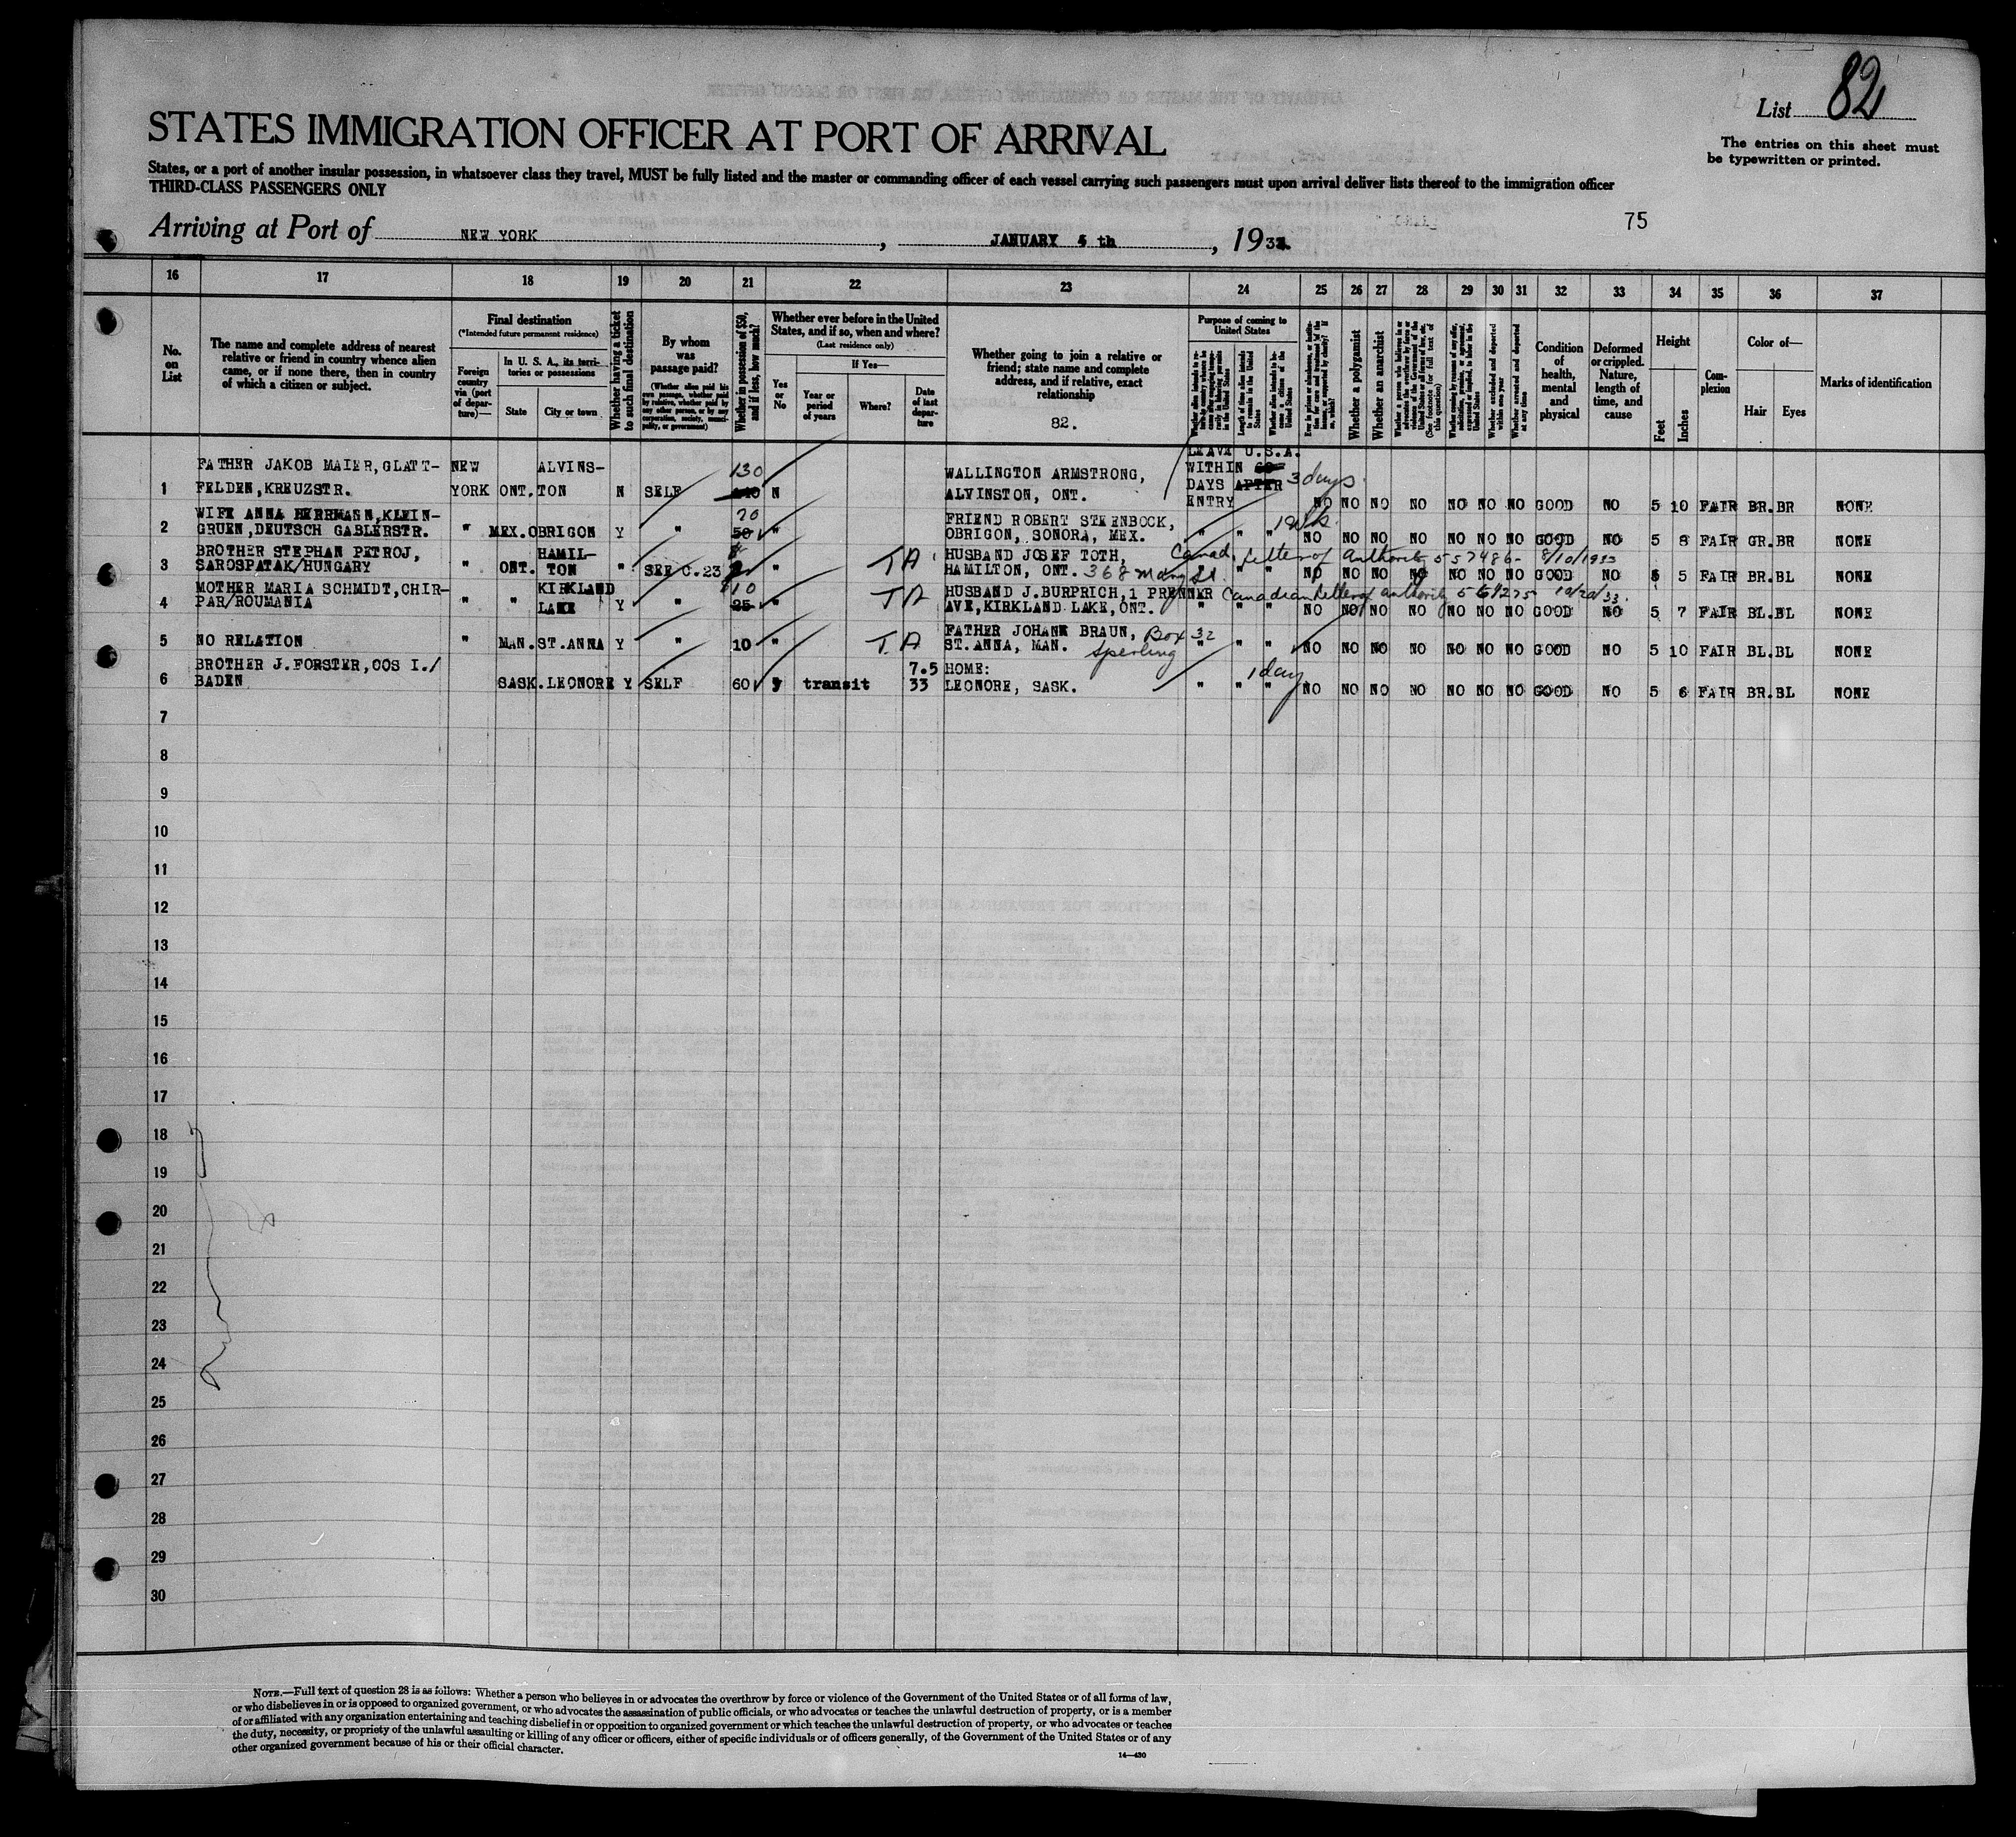 List 82
STATES IMMIGRATION OFFICER AT PORT OF ARRIVAL
The entries on this sheet must
be typewritten or printed.
States, or a port of another insular possession, in whatsoever class they travel, MUST be fully listed and the master or commanding officer of each vessel carrying such passengers must upon arrival deliver lists thereof to the immigration officer
THIRD-CLASS PASSENGERS ONLY
75
Arriving at Port of NEW YORK, JANUARY 5 th, 193
16 17 18 19 20 21 22 23 24 25 26 27 28 29 30 31 32 33 34 35 36 37
No. on List
The name and complete address of nearest
relative or friend in country whence alien
came, or if none there, then in country
of which a citizen or subject.
Final destination
(*Intended future permanent residence)
Foreign country via (port of departure)—
In U. S. A., its territories or possessions
State
City or town
Whether having a ticket to such final destination
By whom was passage paid?
(Whether alien paid his own passage, whether paid by relative, whether paid by any other person, or by any corporation, society, municipality, or government)
Whether in possession of $50, and if less, how much?
Whether ever before in the United
States, and if so, when and where?
(Last residence only)
Yes or No
If Yes—
Year or period of years
Where?
Date of last departure
Whether going to join a relative or
friend; state name and complete
address, and if relative, exact
relationship
82.
Purpose of coming to United States
Length of time alien intends to remain in the United States
Whether alien intends to become a citizen of the United States
Whether a polygamist
Whether an anarchist
(See footnote for full text of this question)
Whether excluded and deported within one year
Whether arrested and deported at any time
Condition of health, mental and physical
Deformed or crippled. Nature, length of time, and cause
Height
Feet
Inches
Complexion
Color of—
Hair
Eyes
Marks of identification
FATHER JAKOB MAIER, GLATT- NEW ALVINS- 130 WALLINGTON ARMSTRONG, LEAVE U.S.A. WITHIN 3 days
1 FELDEN, KREUZSTR. YORK ONT. TON N SELF N ALVINSTON, ONT. DAYS AFTER ENTRY NO NO NO NO NO NO NO GOOD NO 5 10 FAIR BR. BR NONE
WIFE ANNA HERRMANN, KLEIN- 70 FRIEND ROBERT STEENBOCK, 1 Wk.
2 GRUEN, DEUTSCH GABLERSTR. " MEX. OBRIGON Y " 50 " OBRIGON, SONORA, MEX. " " " NO NO NO NO NO NO NO GOOD NO 5 8 FAIR GR. BR NONE
BROTHER STEPHAN PETROJ, HAMIL- TA HUSBAND JOSEF TOTH, Canad. Letter of Authority 557486- 8/10/1933
3 SAROSPATAK/HUNGARY " ONT. TON " SEE C. 23 " HAMILTON, ONT. 368 Mary St. " " NO NO NO NO NO NO NO GOOD NO 5 5 FAIR BR. BL NONE
MOTHER MARIA SCHMIDT, CHIR- KIRKLAND $10 TA HUSBAND J. BURPRICH, 1 PRENNER Canadian letter of authority 10/20/33.
4 PAR/ROUMANIA " " LAKE Y " 25 " AVE, KIRKLAND LAKE, ONT. " " " NO NO NO NO NO NO NO GOOD NO 5 7 FAIR BL. BL NONE
FATHER JOHANN BRAUN, Box 32
5 NO RELATION " MAN. ST. ANNA Y " 10 " TA ST. ANNA, MAN. Sperling " " " NO NO NO NO NO NO NO GOOD NO 5 10 FAIR BL. BL NONE
BROTHER J. FORSTER, OOS I./ 7.5 HOME: 1 day
6 BADEN SASK. LEONORE Y SELF 60 transit 33 LEONORE, SASK. " " " NO NO NO NO NO NO NO GOOD NO 5 6 FAIR BR. BL NONE
7
8
9
10
11
12
13
14
15
16
17
18
19
20
21
22
23
24
25
26
27
28
29
30
NOTE.—Full text of question 28 is as follows: Whether a person who believes in or advocates the overthrow by force or violence of the Government of the United States or of all forms of law,
or who disbelieves in or is opposed to organized government, or who advocates the assassination of public officials, or who advocates or teaches the unlawful destruction of property, or is a member
of or affiliated with any organization entertaining and teaching disbelief in or opposition to organized government or which teaches the unlawful destruction of property, or who advocates or teaches
the duty, necessity, or propriety of the unlawful assaulting or killing of any officer or officers, either of specific individuals or of officers generally, of the Government of the United States or of any
other organized government because of his or their official character.
14—430